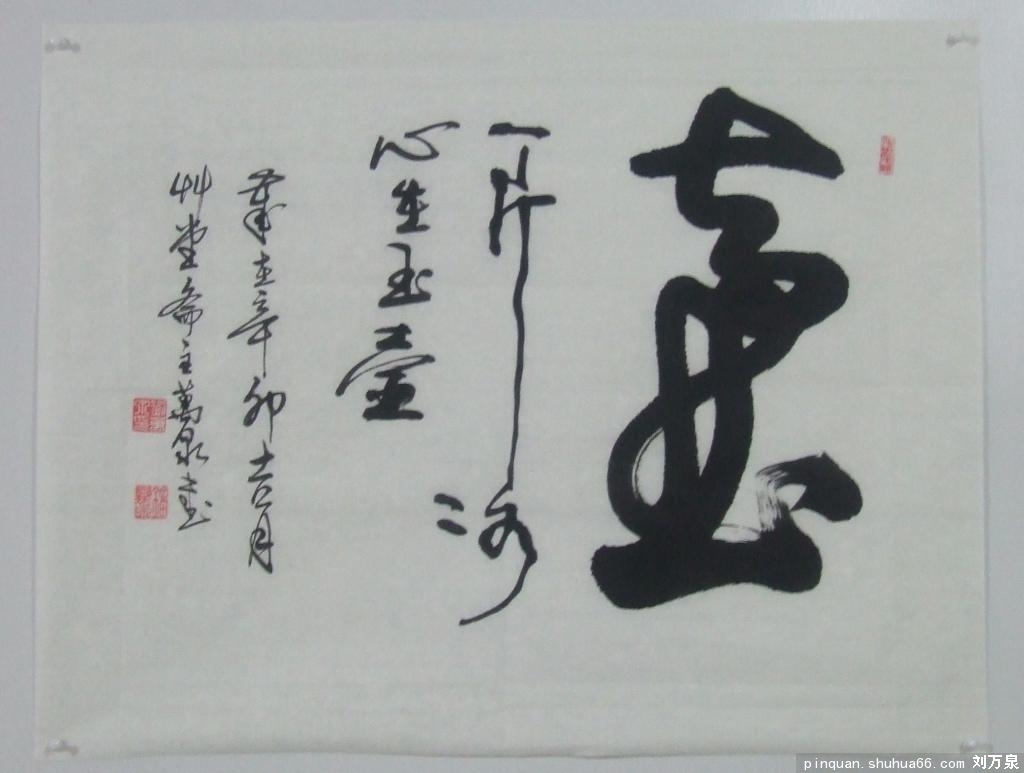 壺
一片冰
心在玉壺
歲在辛卯吉月
艸堂斋主萬泉书
pinquan.shuhua66.com 刘万泉